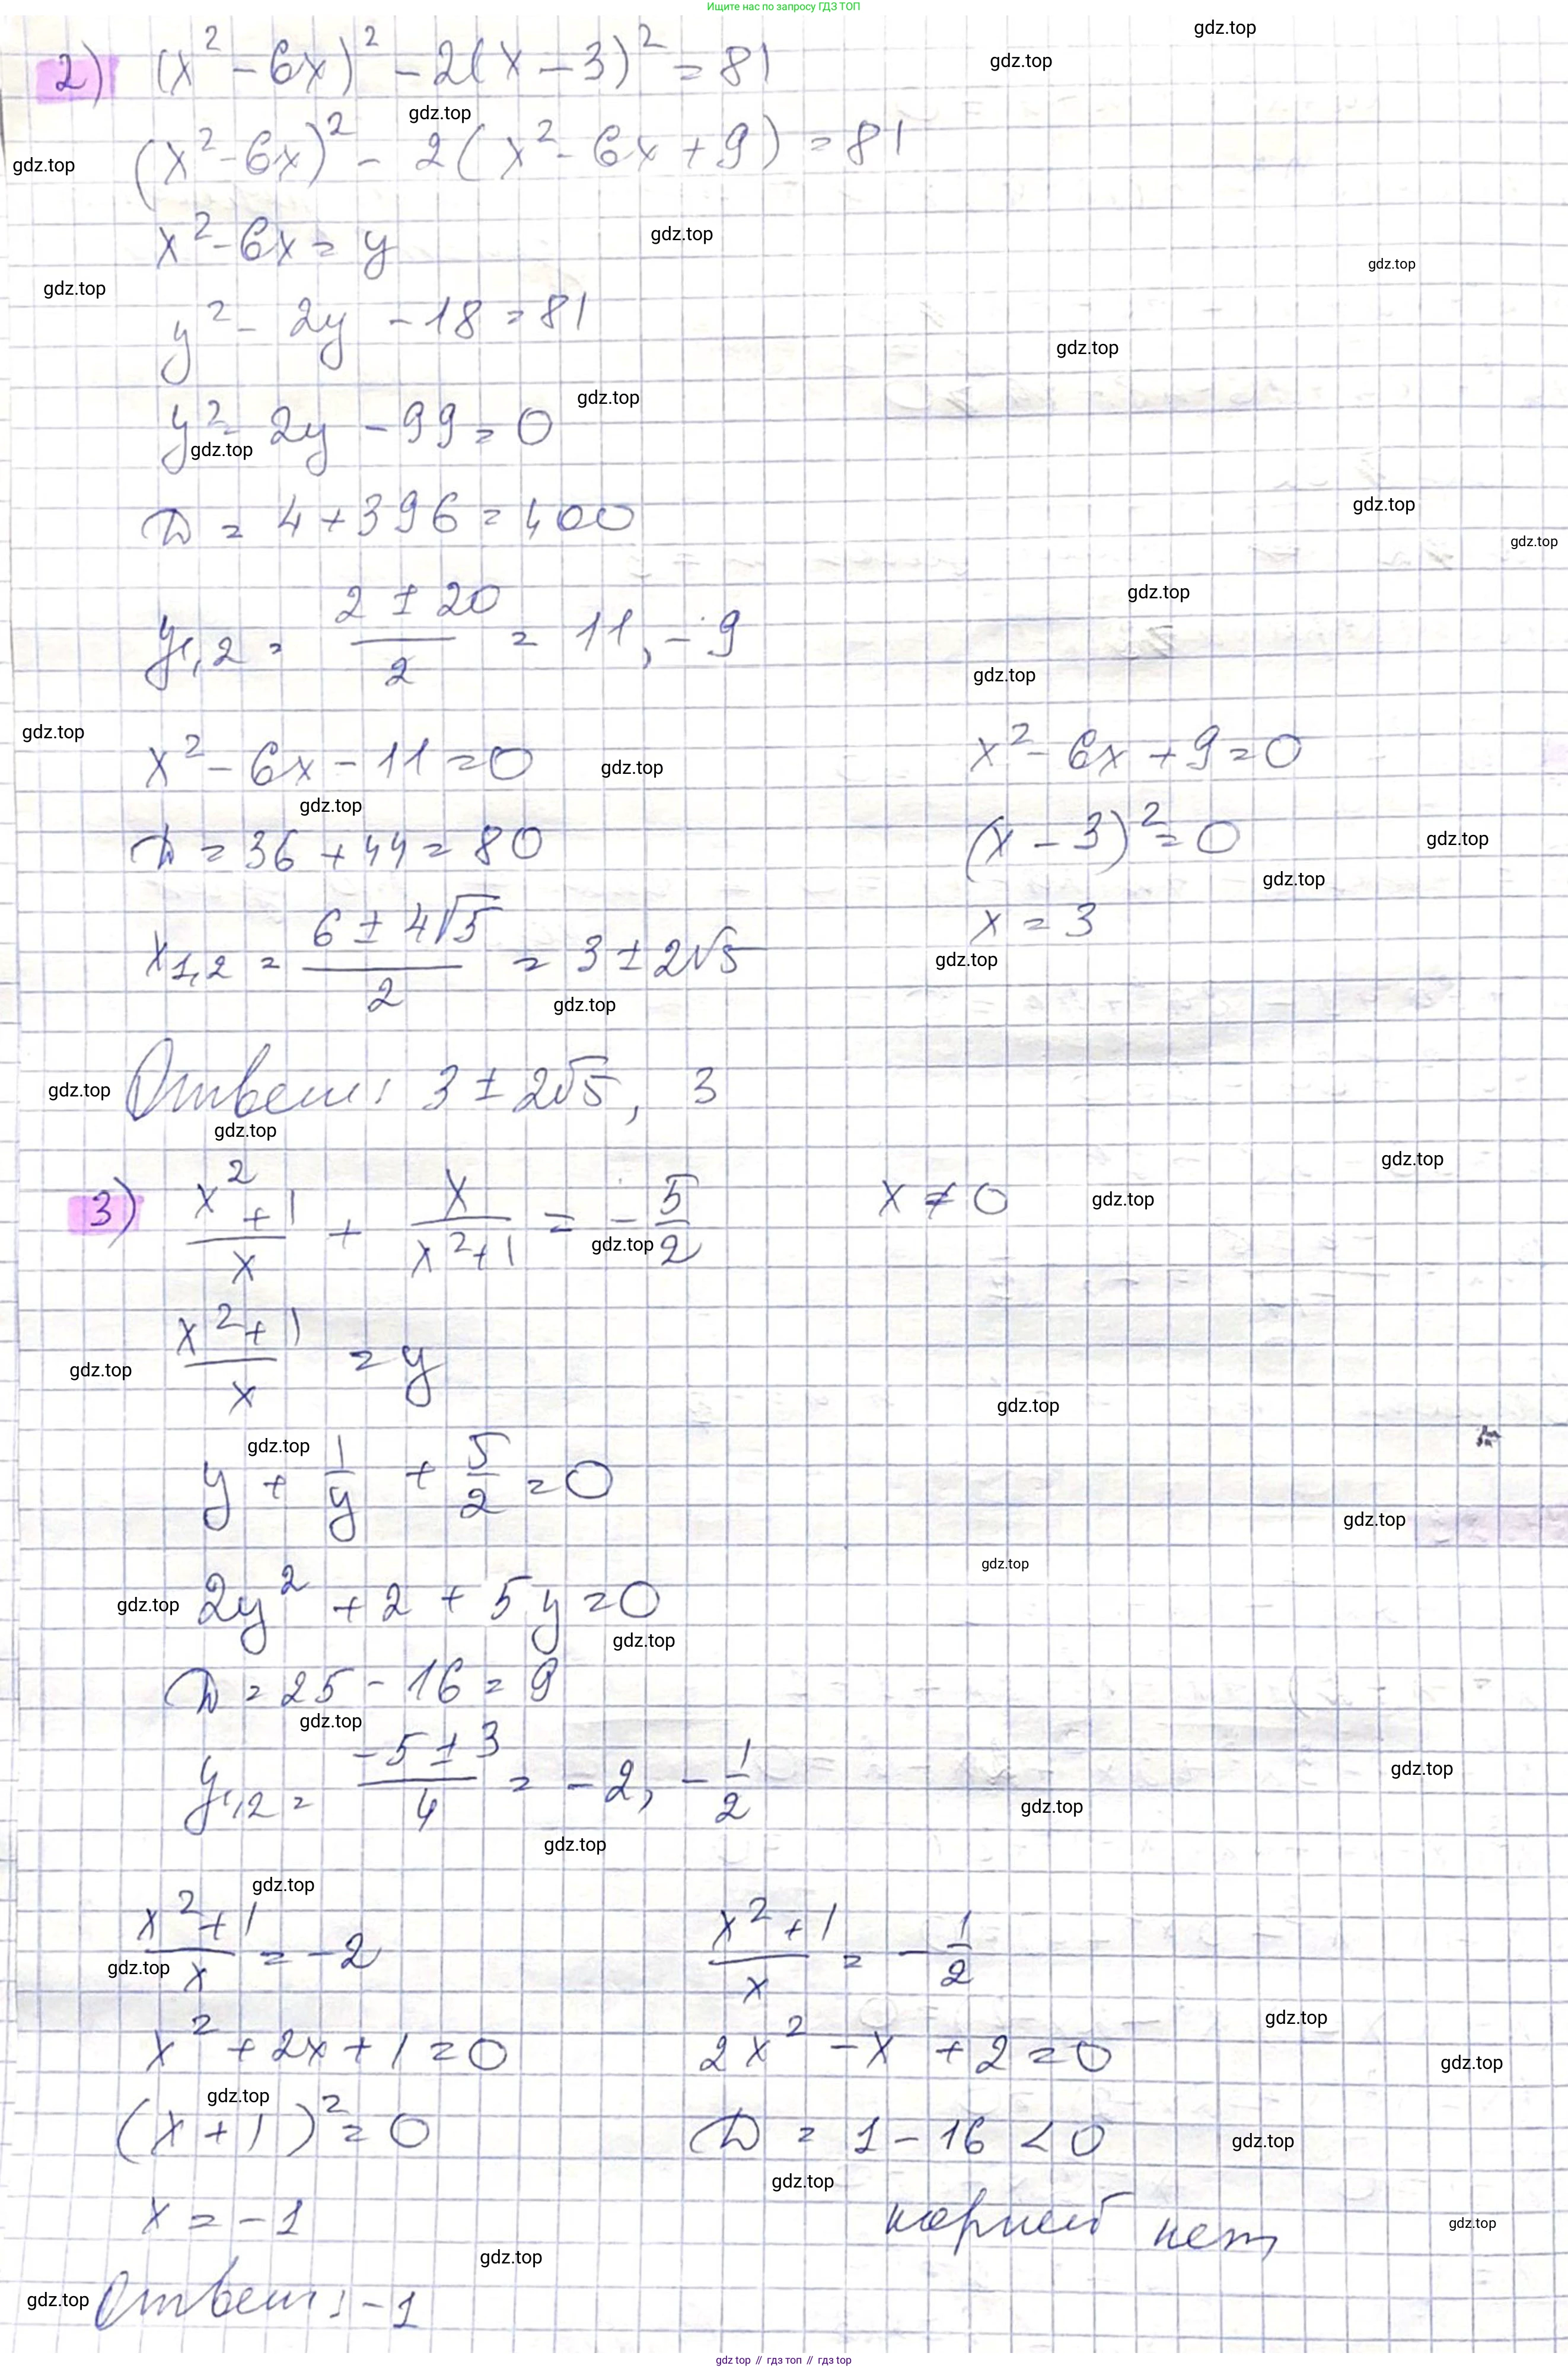 Ищите нас по запросу ГДЗ ТОП
2) (x² - 6x)² - 2(x - 3)² = 81
(x² - 6x)² - 2(x² - 6x + 9) = 81
x² - 6x = y
y² - 2y - 18 = 81
y² - 2y - 99 = 0
D = 4 + 396 = 400
y1,2 = (2 ± 20)/2 = 11, -9
x² - 6x - 11 = 0
D = 36 + 44 = 80
x1,2 = (6 ± 4√5)/2 = 3 ± 2√5
x² - 6x + 9 = 0
(x - 3)² = 0
x = 3
Ответ: 3 ± 2√5, 3
3) (x² + 1)/x + x/(x² + 1) = -5/2 x ≠ 0
(x² + 1)/x = y
y + 1/y + 5/2 = 0
2y² + 2 + 5y = 0
D = 25 - 16 = 9
y1,2 = (-5 ± 3)/4 = -2, -1/2
(x² + 1)/x = -2
x² + 2x + 1 = 0
(x + 1)² = 0
x = -1
(x² + 1)/x = -1/2
2x² - x + 2 = 0
D = 1 - 16 < 0
корней нет
Ответ: -1
gdz.top
gdz top // гдз топ // gdz top